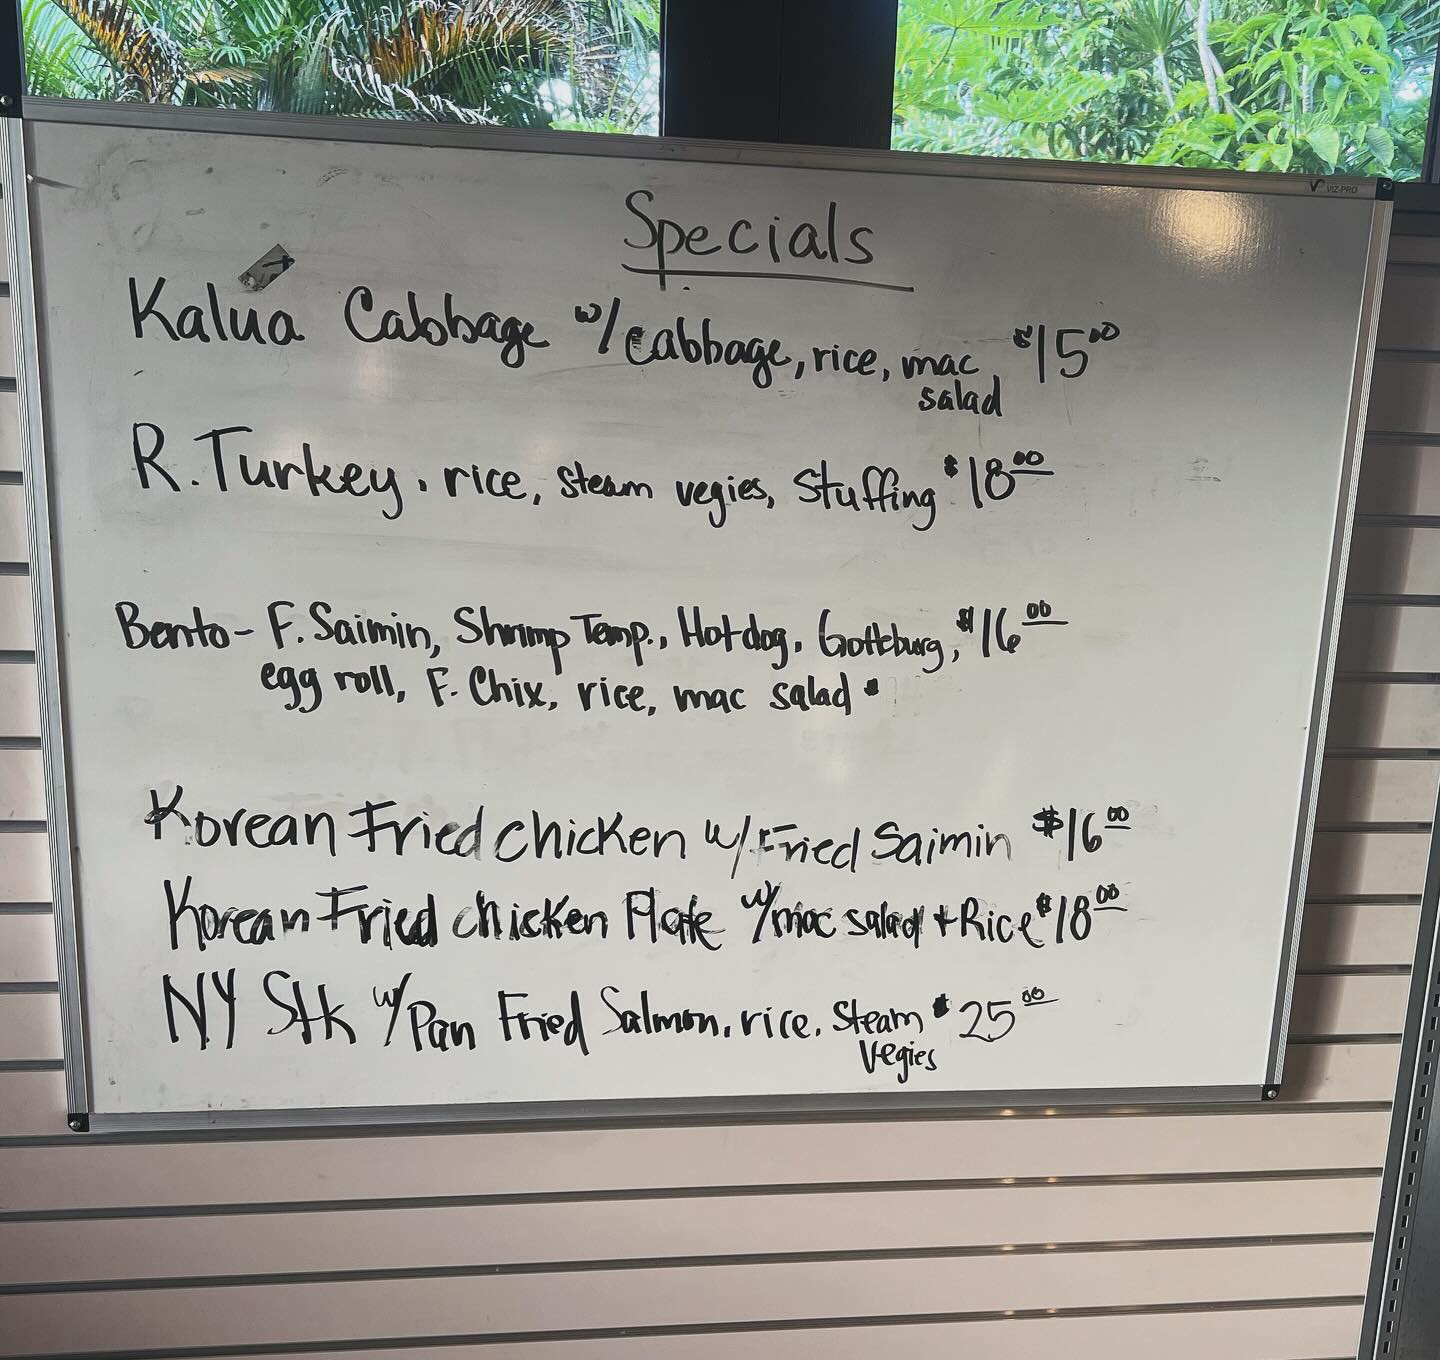 VIZ-PRO
Specials
Kalua Cabbage w/ cabbage, rice, mac $15.00
salad
R. Turkey. rice, steam vegies, Stuffing $18.00
Bento - F. Saimin, Shrimp Temp., Hotdog, Gotteburg, $16.00
egg roll, F. Chix, rice, mac salad
Korean Fried chicken w/ Fried Saimin $16.00
Korean Fried chicken Plate w/ mac salad + Rice $18.00
NY Stk w/ Pan Fried Salmon, rice, Steam $25.00
Vegies